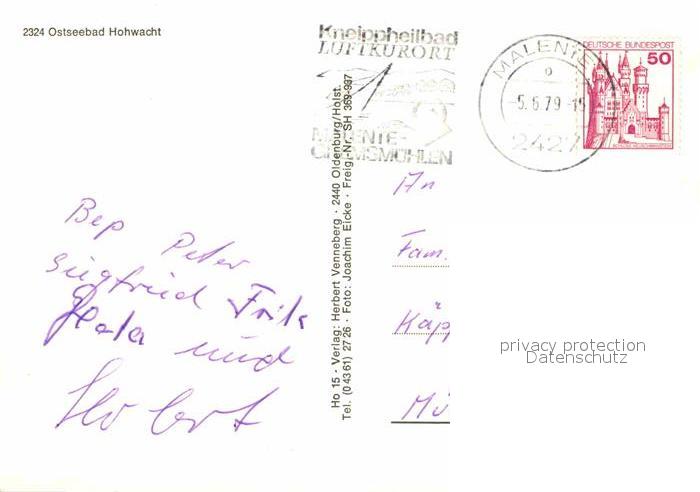 2324 Ostseebad Hohwacht
Kneippheilbad
LUFTKURORT
MALENTE-
GREMSMÜHLEN
MALENTE
-5.6.79-15
2427
DEUTSCHE BUNDESPOST
50
Ho 15 · Verlag: Herbert Venneberg · 2440 Oldenburg/Holst.
Tel. (0 43 61) 27 26 · Foto: Joachim Eicke · Freig.-Nr. SH 369-937
An
Fam.
Käpp
Mü
Bep Peter
Siegfried Frits
und
privacy protection
Datenschutz